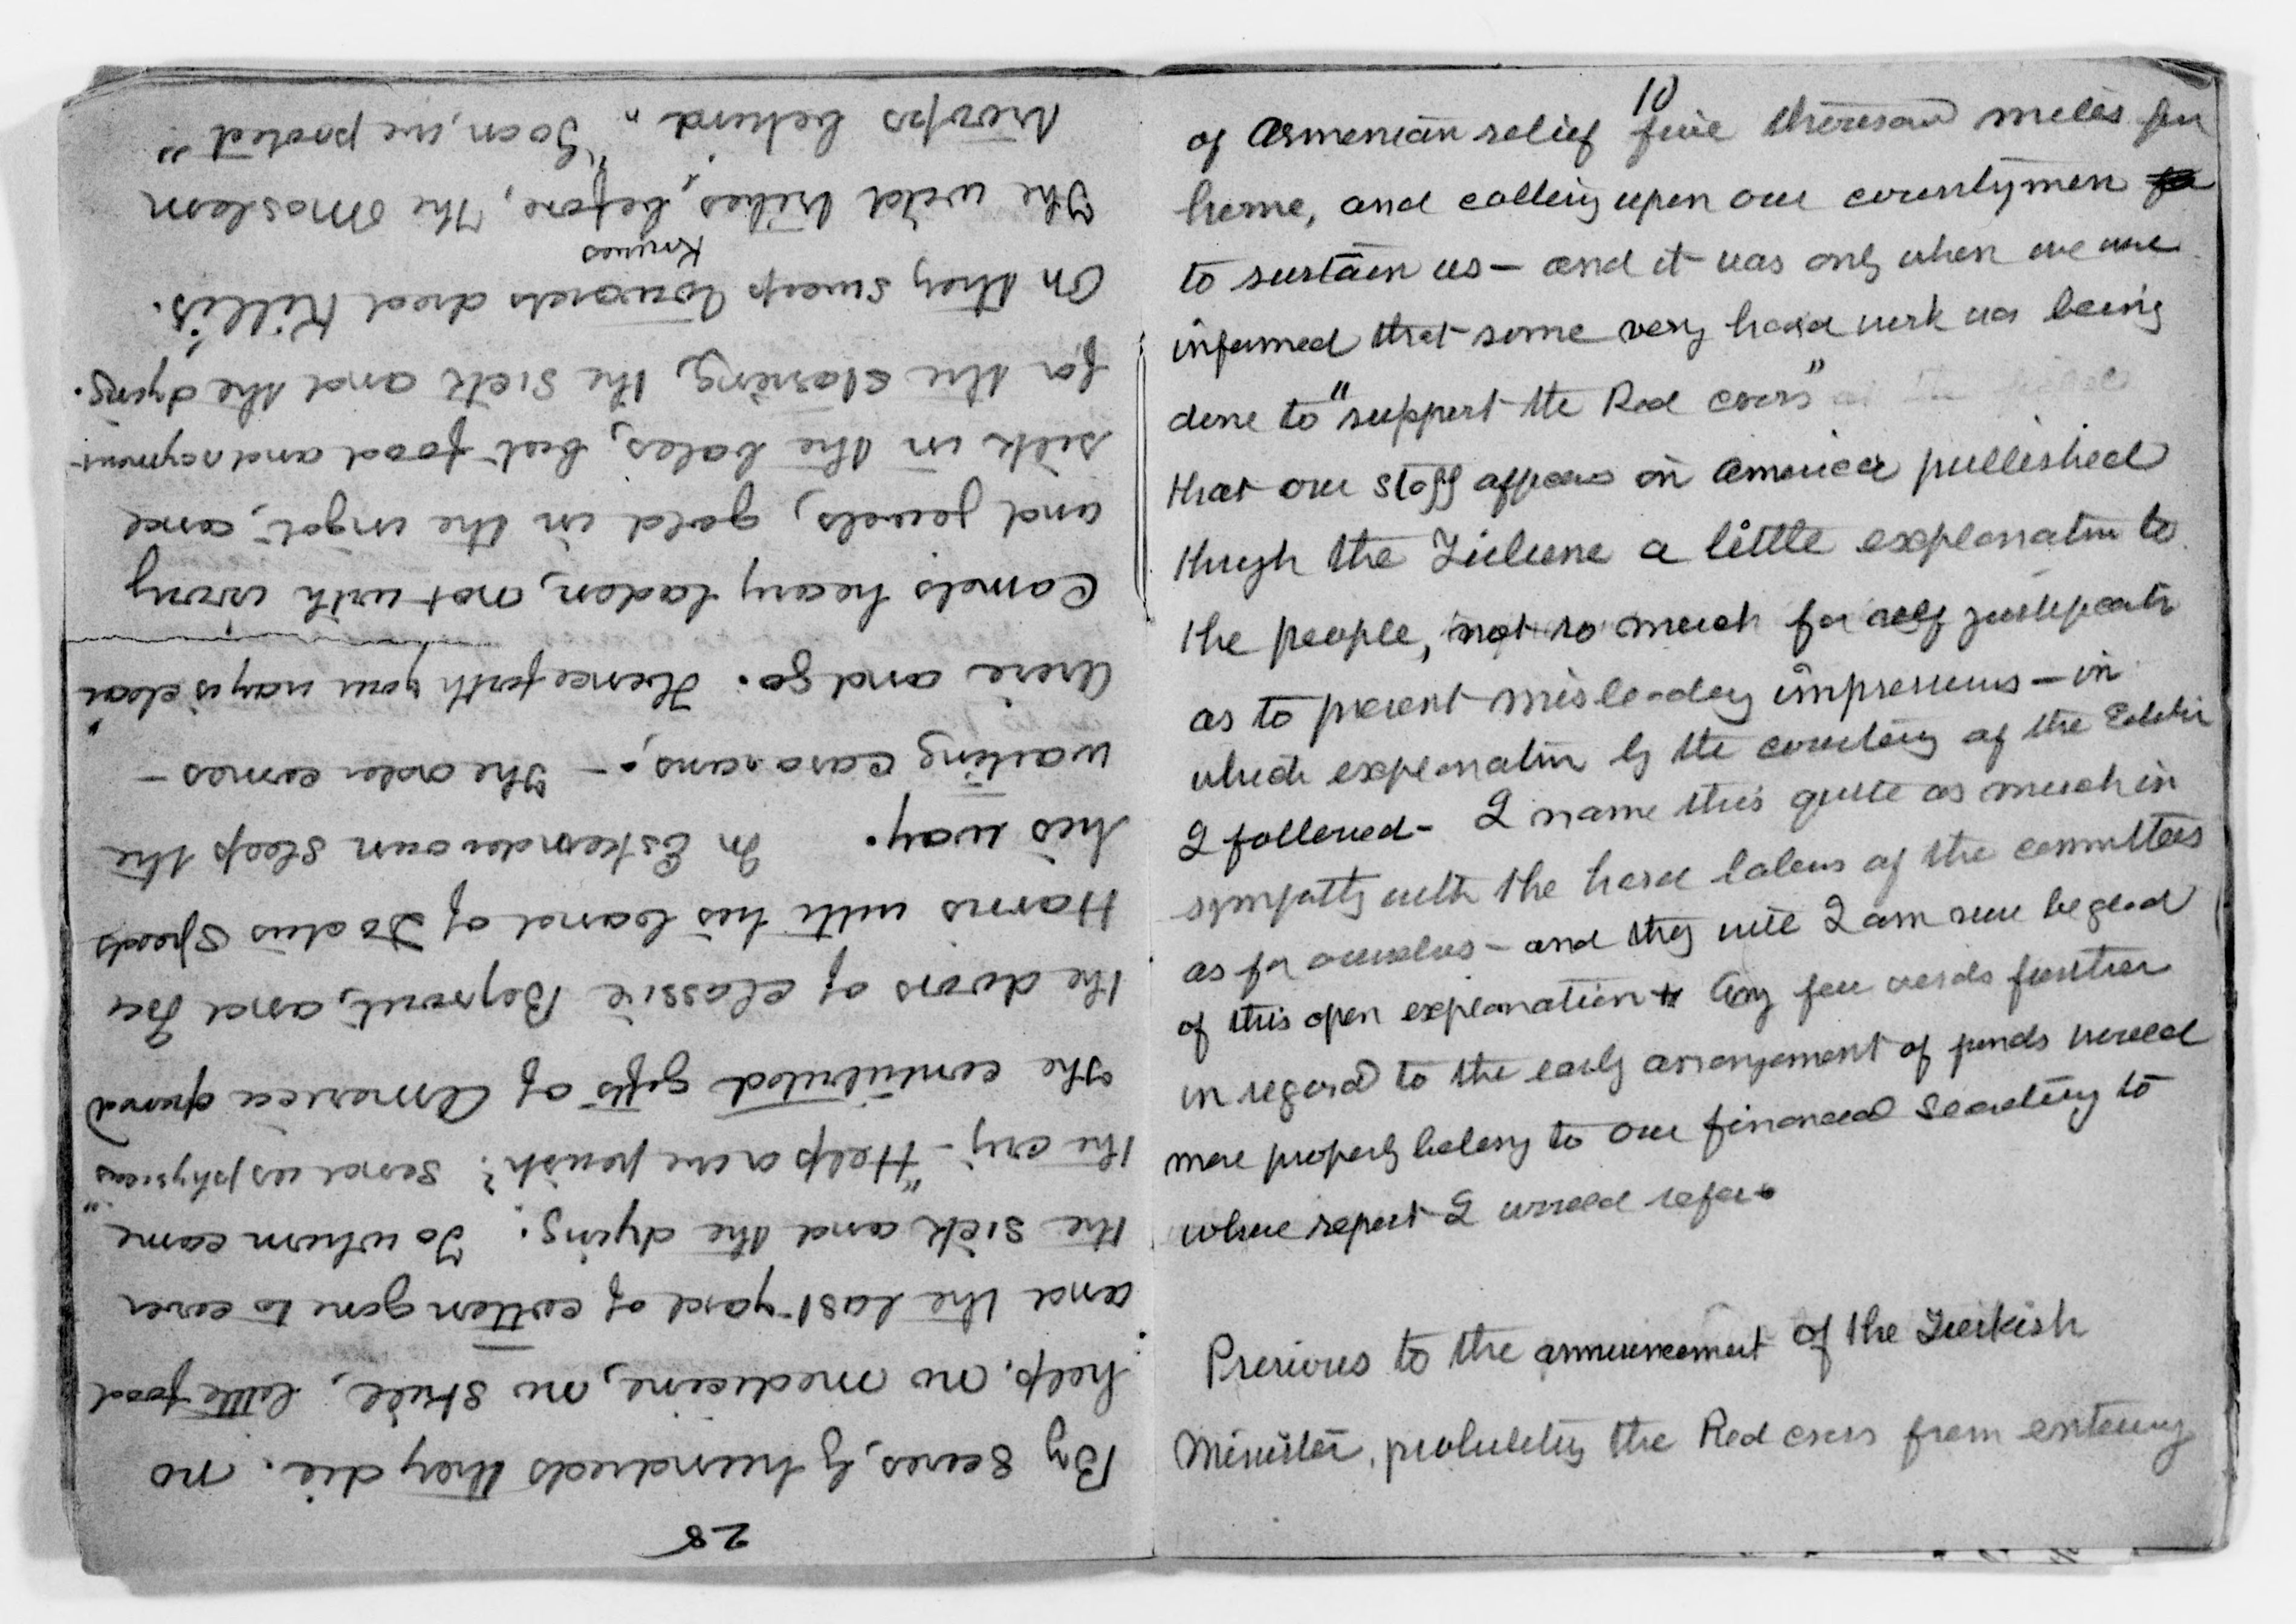 10
of Armenian relief five thousand miles fm
home, and calling upon our countrymen
to sustain us — and it was only when we were
informed that some very hard work was being
done to "support the Red cross"
that our staff appears in America published
through the Tribune a little explanation to
the people, not so much for self justification
as to prevent misleading impressions — in
which explanation by the courtesy of the Editor
I followed — I name this quite as much in
sympathy with the hard labors of the committees
as for ourselves — and they will I am sure be glad
of this open explanation. Any few words further
in regard to the early arrangement of funds would
more properly belong to our financial secretary to
whose report I would refer.
Previous to the announcement of the Turkish
Minister, prohibiting the Red cross from entering
28
By scores, by hundreds they die. no
help, no medicine, no skill, little food
and the last yard of cotton gone to cover
the sick and the dying: To whom came
the cry — "Help or we perish! Send us physicians"
The contributed gifts of America opened
the doors of classic Beyrout, and Ira
Harris with his band of Doctors speeds
his way. In Eskenderoun sleep the
waiting caravans; — The order comes —
Arise and go. Henceforth your way is clear"
Camels heavy laden, not with ivory
and jewels, gold in the ingot, and
silk in the bales, but food and rayment
for the starving, the sick and the dying.
On they sweep towards dred Killis.
Knives
The wild tribes, before, the Moslem
troops behind "Go on, we protect"